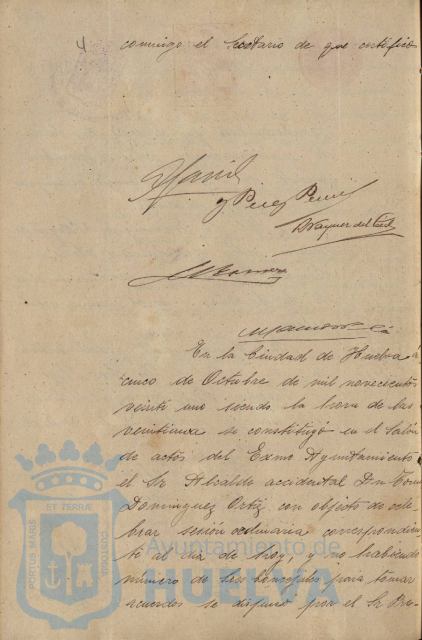 4
conmigo el Secretario de que certifico
y Perez
En la Ciudad de Huelva á
cinco de Octubre de mil novecientos
veinti uno siendo la hora de las
veintiuna se constituyó en el Salón
de actos del Exmo Ayuntamiento
el Sr Alcalde accidental Dn
Dominguez Ortiz con objeto de cele
brar sesión ordinaria correspondien
te al dia de hoy, no habiendo
número de Sres Concejales para tomar
acuerdos se dispuso por el Sr Pre-
ET TERRÆ
PORTUS MARIS
CUSTODIA
Ayuntamiento de
HUELVA